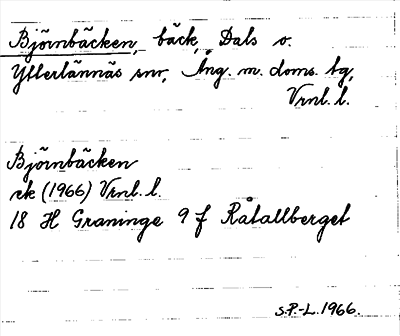 Björnbäcken, bäck, Dals o.
Ytterlännäs snr, Ång. m. doms. tg,
Vrnl. l.
Björnbäcken
rk (1966) Vrnl. l.
18 H Graninge 9 f Råtallberget
S.P.-L. 1966.